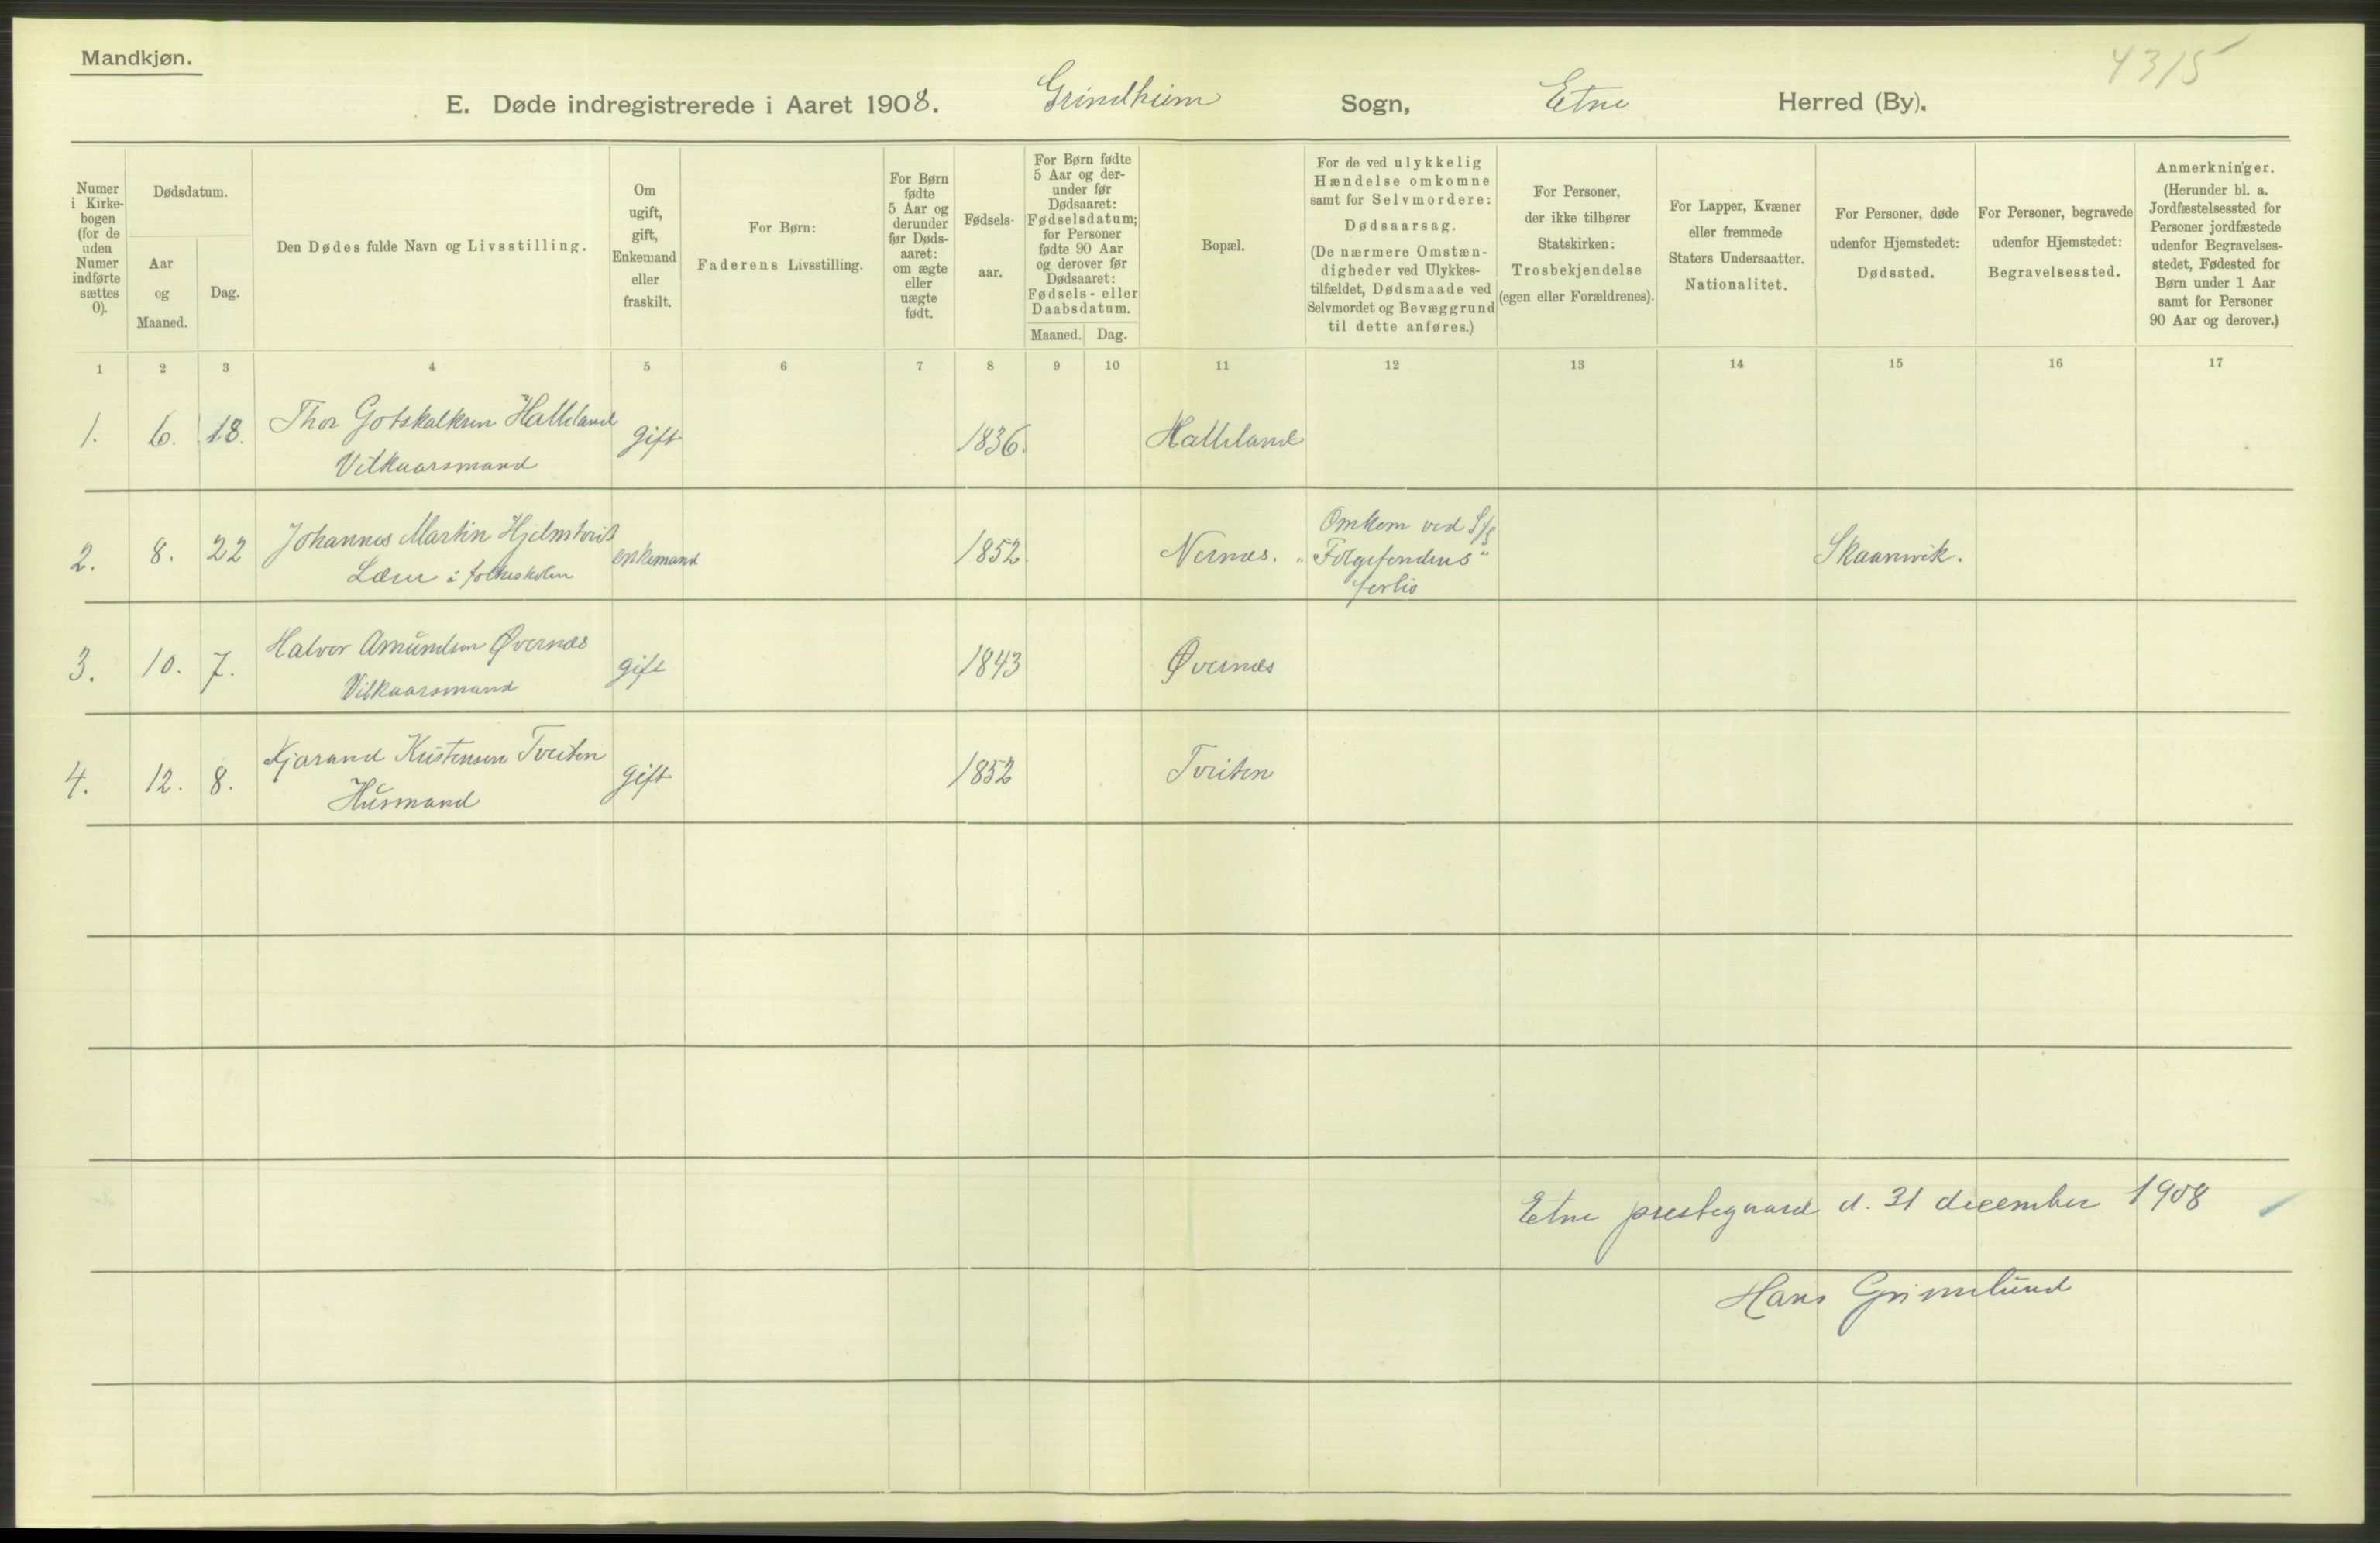 Mandkjøn.
4315
E. Døde indregistrerede i Aaret 1908. Grindheim Sogn, Etne Herred (By).
Numer
i Kirke-
bogen
(for de
uden
Numer
indførte
sættes
0).
Dødsdatum.
Aar
og
Maaned.
Dag.
Den Dødes fulde Navn og Livsstilling.
Om
ugift,
gift,
Enkemand
eller
fraskilt.
For Børn:
Faderens Livsstilling.
For Børn
fødte
5 Aar og
derunder
før Døds-
aaret:
om ægte
eller
uægte
født.
Fødsels-
aar.
For Børn fødte
5 Aar og der-
under før
Dødsaaret:
Fødselsdatum;
for Personer
fødte 90 Aar
og derover før
Dødsaaret:
Fødsels- eller
Daabsdatum.
Maaned. Dag.
Bopæl.
For de ved ulykkelig
Hændelse omkomne
samt for Selvmordere:
Dødsaarsag.
(De nærmere Omstæn-
digheder ved Ulykkes-
tilfældet, Dødsmaade ved
Selvmordet og Bevæggrund
til dette anføres.)
For Personer,
der ikke tilhører
Statskirken:
Trosbekjendelse
(egen eller Forældrenes).
For Lapper, Kvæner
eller fremmede
Staters Undersaatter.
Nationalitet.
For Personer, døde
udenfor Hjemstedet:
Dødssted.
For Personer, begravede
udenfor Hjemstedet:
Begravelsessted.
Anmerkninger.
(Herunder bl. a.
Jordfæstelsessted for
Personer jordfæstede
udenfor Begravelses-
stedet, Fødested for
Børn under 1 Aar
samt for Personer
90 Aar og derover.)
1 2 3 4 5 6 7 8 9 10 11 12 13 14 15 16 17
1. 6. 18. Thor Gotskalksen Halleland gift 1836. Halleland
Vilkaarsmand
2. 8. 22 Johannes Martin enkemand 1852. Nernæs. Omkom ved S/S Skaanvik.
Lærer i folkeskolen "Folgefondens"
forlis
3. 10. 7. Halvor Amundsen Øvernæs gift 1843 Øvernæs
Vilkaarsmand
4. 12. 8. Kjarand Kristensen Tveiten gift 1852 Tveiten
Husmand
Etne prestegaard d. 31 december 1908
Hans Grimelund